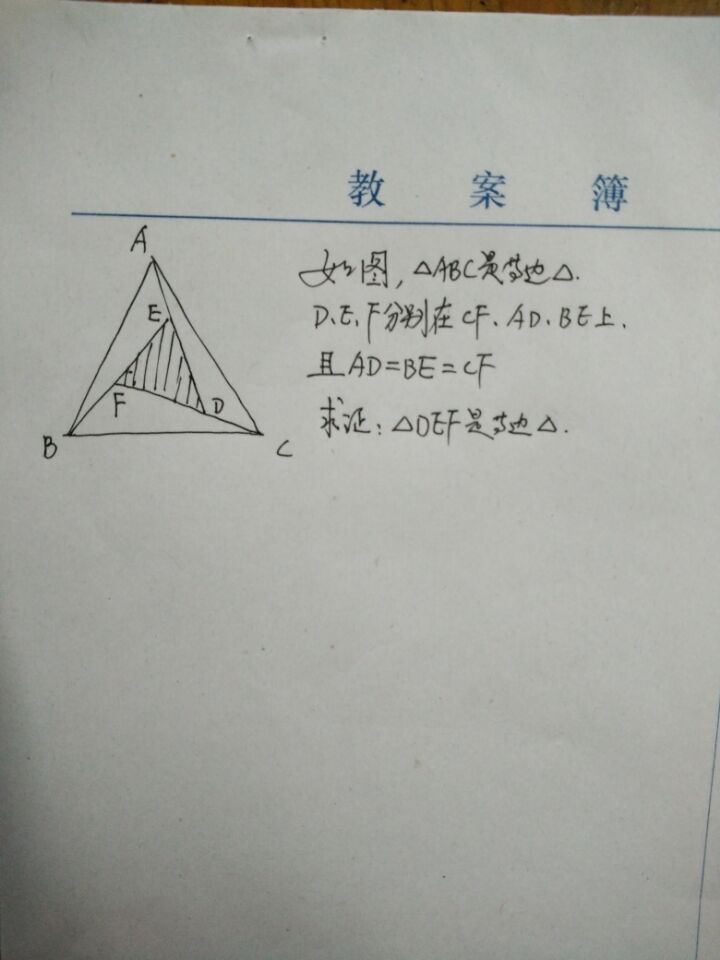 教案簿
如图,△ABC是等边△.
D、E、F分别在CF、AD、BE上,
且AD=BE=CF
求证:△DEF是等边△.
A
E
F
D
B
C